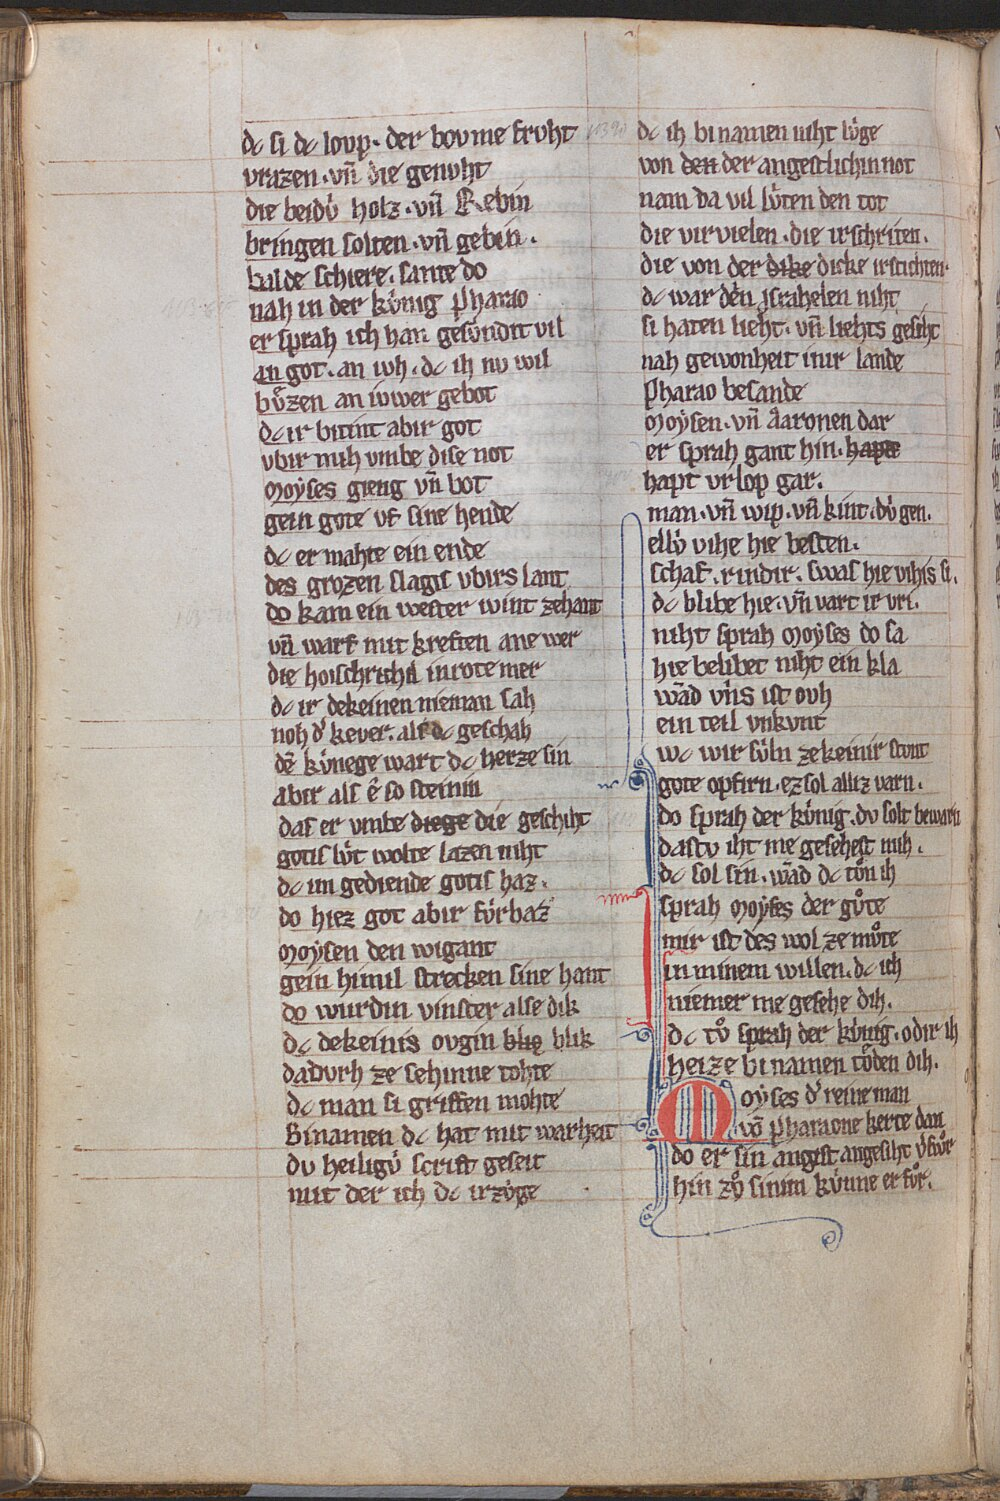 dc si dc loup. der boume fruht
vrazen. vn̄ die genuht
die beidv̍ holz. vn̄ Rebin
bringen solten. vn̄ gebin.
balde schiere. sante do
nah in der kv̍nig pharao
er sprah ich han gesvndit vil
an got. an iwh. dc ih nv wil
bv̊zen an iwer gebot
dc ir bitint abir got
vbir mih vmbe dise not
Moẏses gieng vn̄ bot
gein gote vf sine hende
dc er mahte ein ende
des grozen slagis vbirs lant
do kam ein wester wint zehant
vn̄ warf mit kreften ane wer
die hoischrichil inrote mer
dc ir dekeinen nieman sah
noh d' kever. als dc geschah
dē kv̍nege wart dc herze sin
abir als ê so steinin
das er vmbe diege die geschiht
gotis lv̍t wolte lazen niht
dc im gediende gotis haz.
do hiez got abir fv̍rbaz
Moẏsen den wigant
gein himil strecken sine hant
do wurdin vinster alse dik
dc dekeinis ovgin klig blik
dadvrh ze sehinne tohte
dc man si griffen mohte
Binamen dc hat mit warheit
dv heiligv̍ scrift geseit
mit der ich dc irzv̍ge
dc ih bi namen niht lv̍ge
von den der angestlichin not
nam da vil lv̍ten den tot
die virvielen. die irschriten.
die von der dike dicke irstichten.
dc war den jsrahelen niht
si haten lieht. vn̄ liehts gesiht
nah gewonheit inir lande
Pharao besande
Moẏsen. vn̄ Aaronen dar
er sprah gant hin. hapt
hapt vrlop gar.
man. vn̄ wip. vn̄ kint. dv̍ gen.
ellv̍ vihe hie besten.
schaf. rindir. swas hie vihis si.
dc blibe hie. vn̄ vart ir vri.
niht sprah Moẏses do sa
hie belibet niht ein kla
wād vn̍s ist ovh
ein teil vnkvnt
wc wir sv̍ln zekeinir stont
gote opfirn. ez sol alliz varn.
do sprah der kv̍nig. dv solt bewarn
dastv iht me gesehest mih.
dc sol sin. wād dc tv̊n ih
sprah Moẏses der gv̊te
mir ist des wol ze mv̊te
in minem willen. dc ich
niemer me gesehe dih.
dc tv̊ sprah der kv̍nig. odir ih
heize bi namen tôden dih.
Moẏses d' reine man
vō pharaone kerte dan
do er sin angest angesiht v'fv̊r
hin zv̊ sinim kv̍nne er fv̊r.